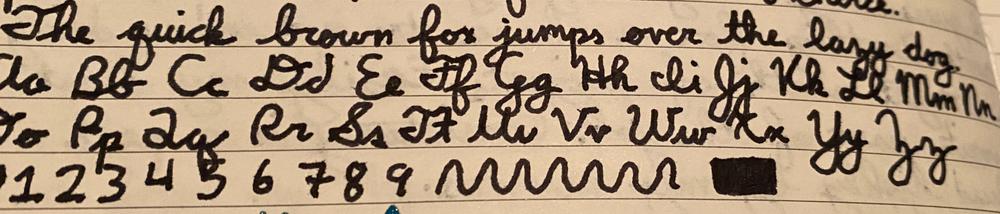 The quick brown fox jumps over the lazy dog.
Aa Bb Cc Dd Ee Ff Gg Hh Ii Jj Kk Ll Mm Nn
Oo Pp Qq Rr Ss Tt Uu Vv Ww Xx Yy Zz
1 2 3 4 5 6 7 8 9